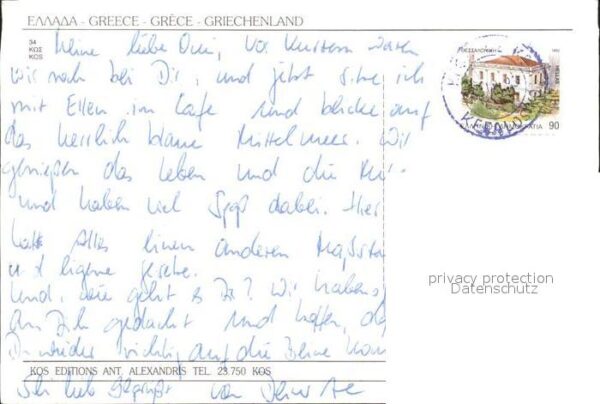 ΕΛΛΑΔΑ - GREECE - GRÈCE - GRIECHENLAND
34
ΚΩΣ
KOS
Meine liebe Omi, vor kurzem waren
wir noch bei Dir, und jetzt sitze ich
mit Ellen im Cafe und blicke auf
das herrlich blaue Mittelmeer. Wir
genießen das Leben und die
und haben viel Spaß dabei. Hier
hat Alles einen anderen Maßsta
und eigene Gesetze.
Und, wie geht es Dir? Wir haben
an Dich gedacht und hoffen, da
Du wieder richtig auf die Beine kom
KOS EDITIONS ANT. ALEXANDRIS TEL. 23.750 KOS
Sei lieb gegrüßt von
90
privacy protection
Datenschutz